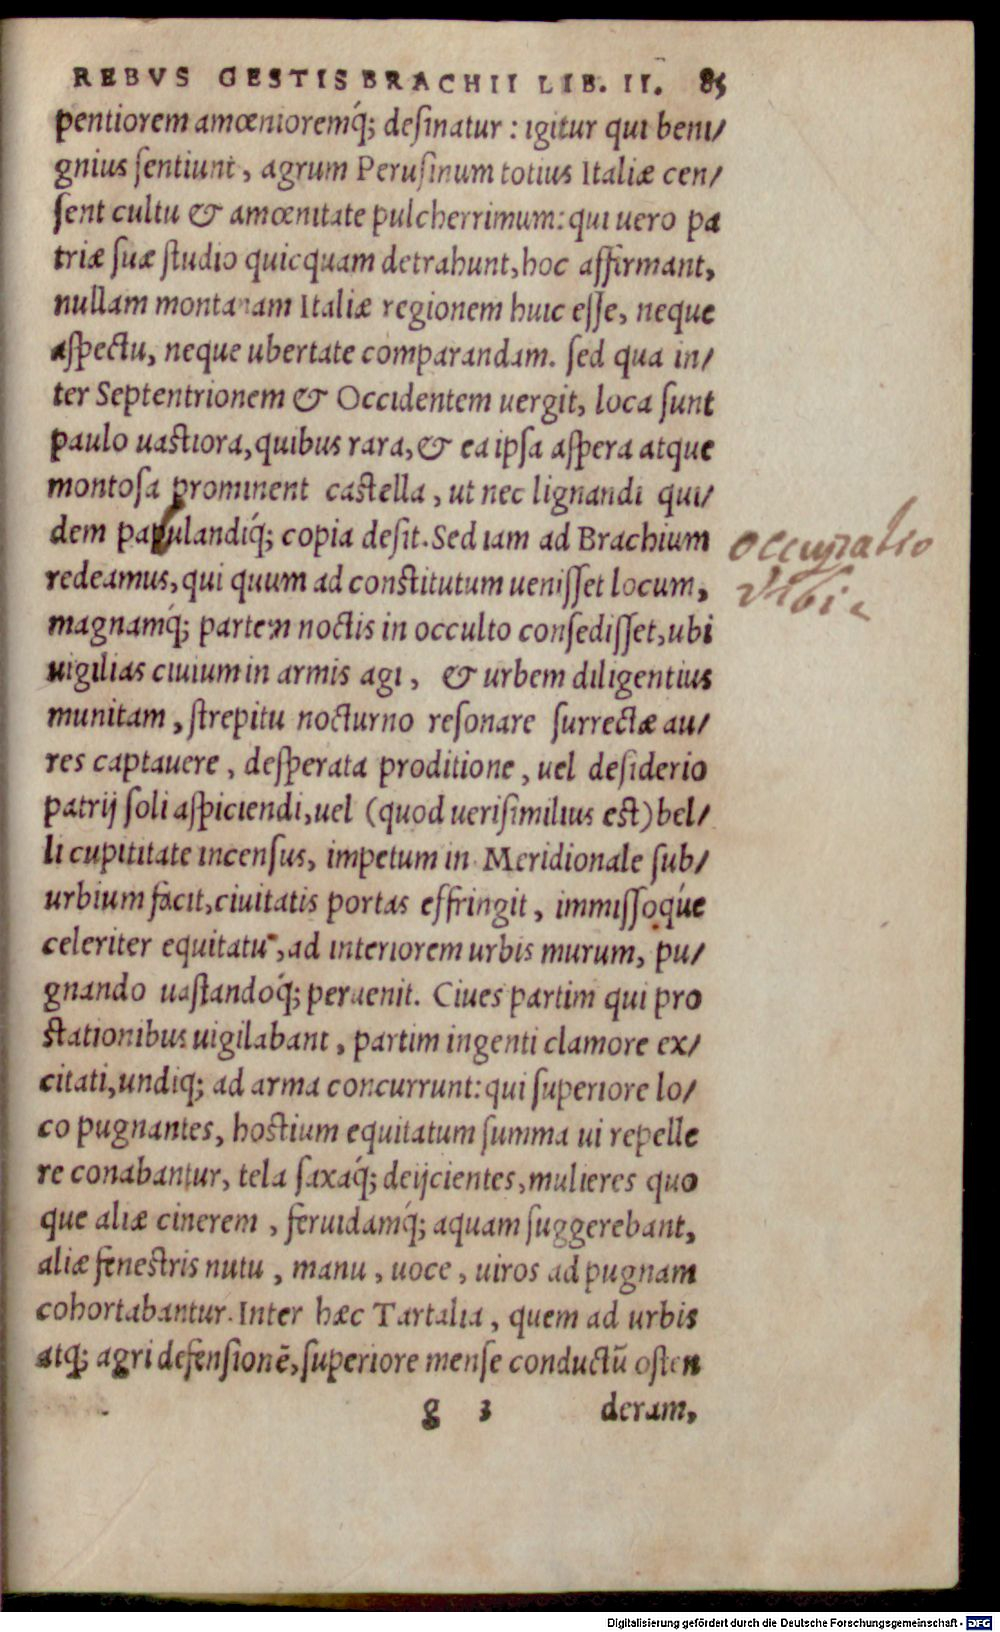 REBVS GESTIS BRACHII LIB. II. 85
pentiorem amœnioremq́; deſinatur : igitur qui beni/
gnius ſentiunt, agrum Peruſinum totius Italiæ cen/
ſent cultu & amœnitate pulcherrimum: qui uero pa
triæ ſuæ ſtudio quicquam detrahunt, hoc affirmant,
nullam montanam Italiæ regionem huic eſſe, neque
aſpectu, neque ubertate comparandam. ſed qua in/
ter Septentrionem & Occidentem uergit, loca ſunt
paulo uaſtiora, quibus rara, & ea ipſa aſpera atque
montoſa prominent caſtella, ut nec lignandi qui/
dem papulandiq́; copia deſit. Sed iam ad Brachium
redeamus, qui quum ad conſtitutum ueniſſet locum,
magnamq́; partem noctis in occulto conſediſſet, ubi
uigilias ciuium in armis agi, & urbem diligentius
munitam, ſtrepitu nocturno reſonare ſurrectæ au/
res captauere, deſperata proditione, uel deſiderio
patrij ſoli aſpiciendi, uel (quod ueriſimilius eſt) bel/
li cupititate incenſus, impetum in Meridionale ſub/
urbium facit, ciuitatis portas effringit, immiſſoqúe
celeriter equitatu, ad interiorem urbis murum, pu/
gnando uaſtandoq́; peruenit. Ciues partim qui pro
ſtationibus uigilabant, partim ingenti clamore ex/
citati, undiq; ad arma concurrunt: qui ſuperiore lo/
co pugnantes, hoſtium equitatum ſumma ui repelle
re conabantur, tela ſaxaq́; deijcientes, mulieres quo
que aliæ cinerem, feruidamq́; aquam ſuggerebant,
aliæ feneſtris nutu, manu, uoce, uiros ad pugnam
cohortabantur. Inter hæc Tartalia, quem ad urbis
atq; agri defenſionē, ſuperiore menſe conductū oſten
g 3 deram,
occupatio
Vrbis
Digitalisierung gefördert durch die Deutsche Forschungsgemeinschaft - DFG